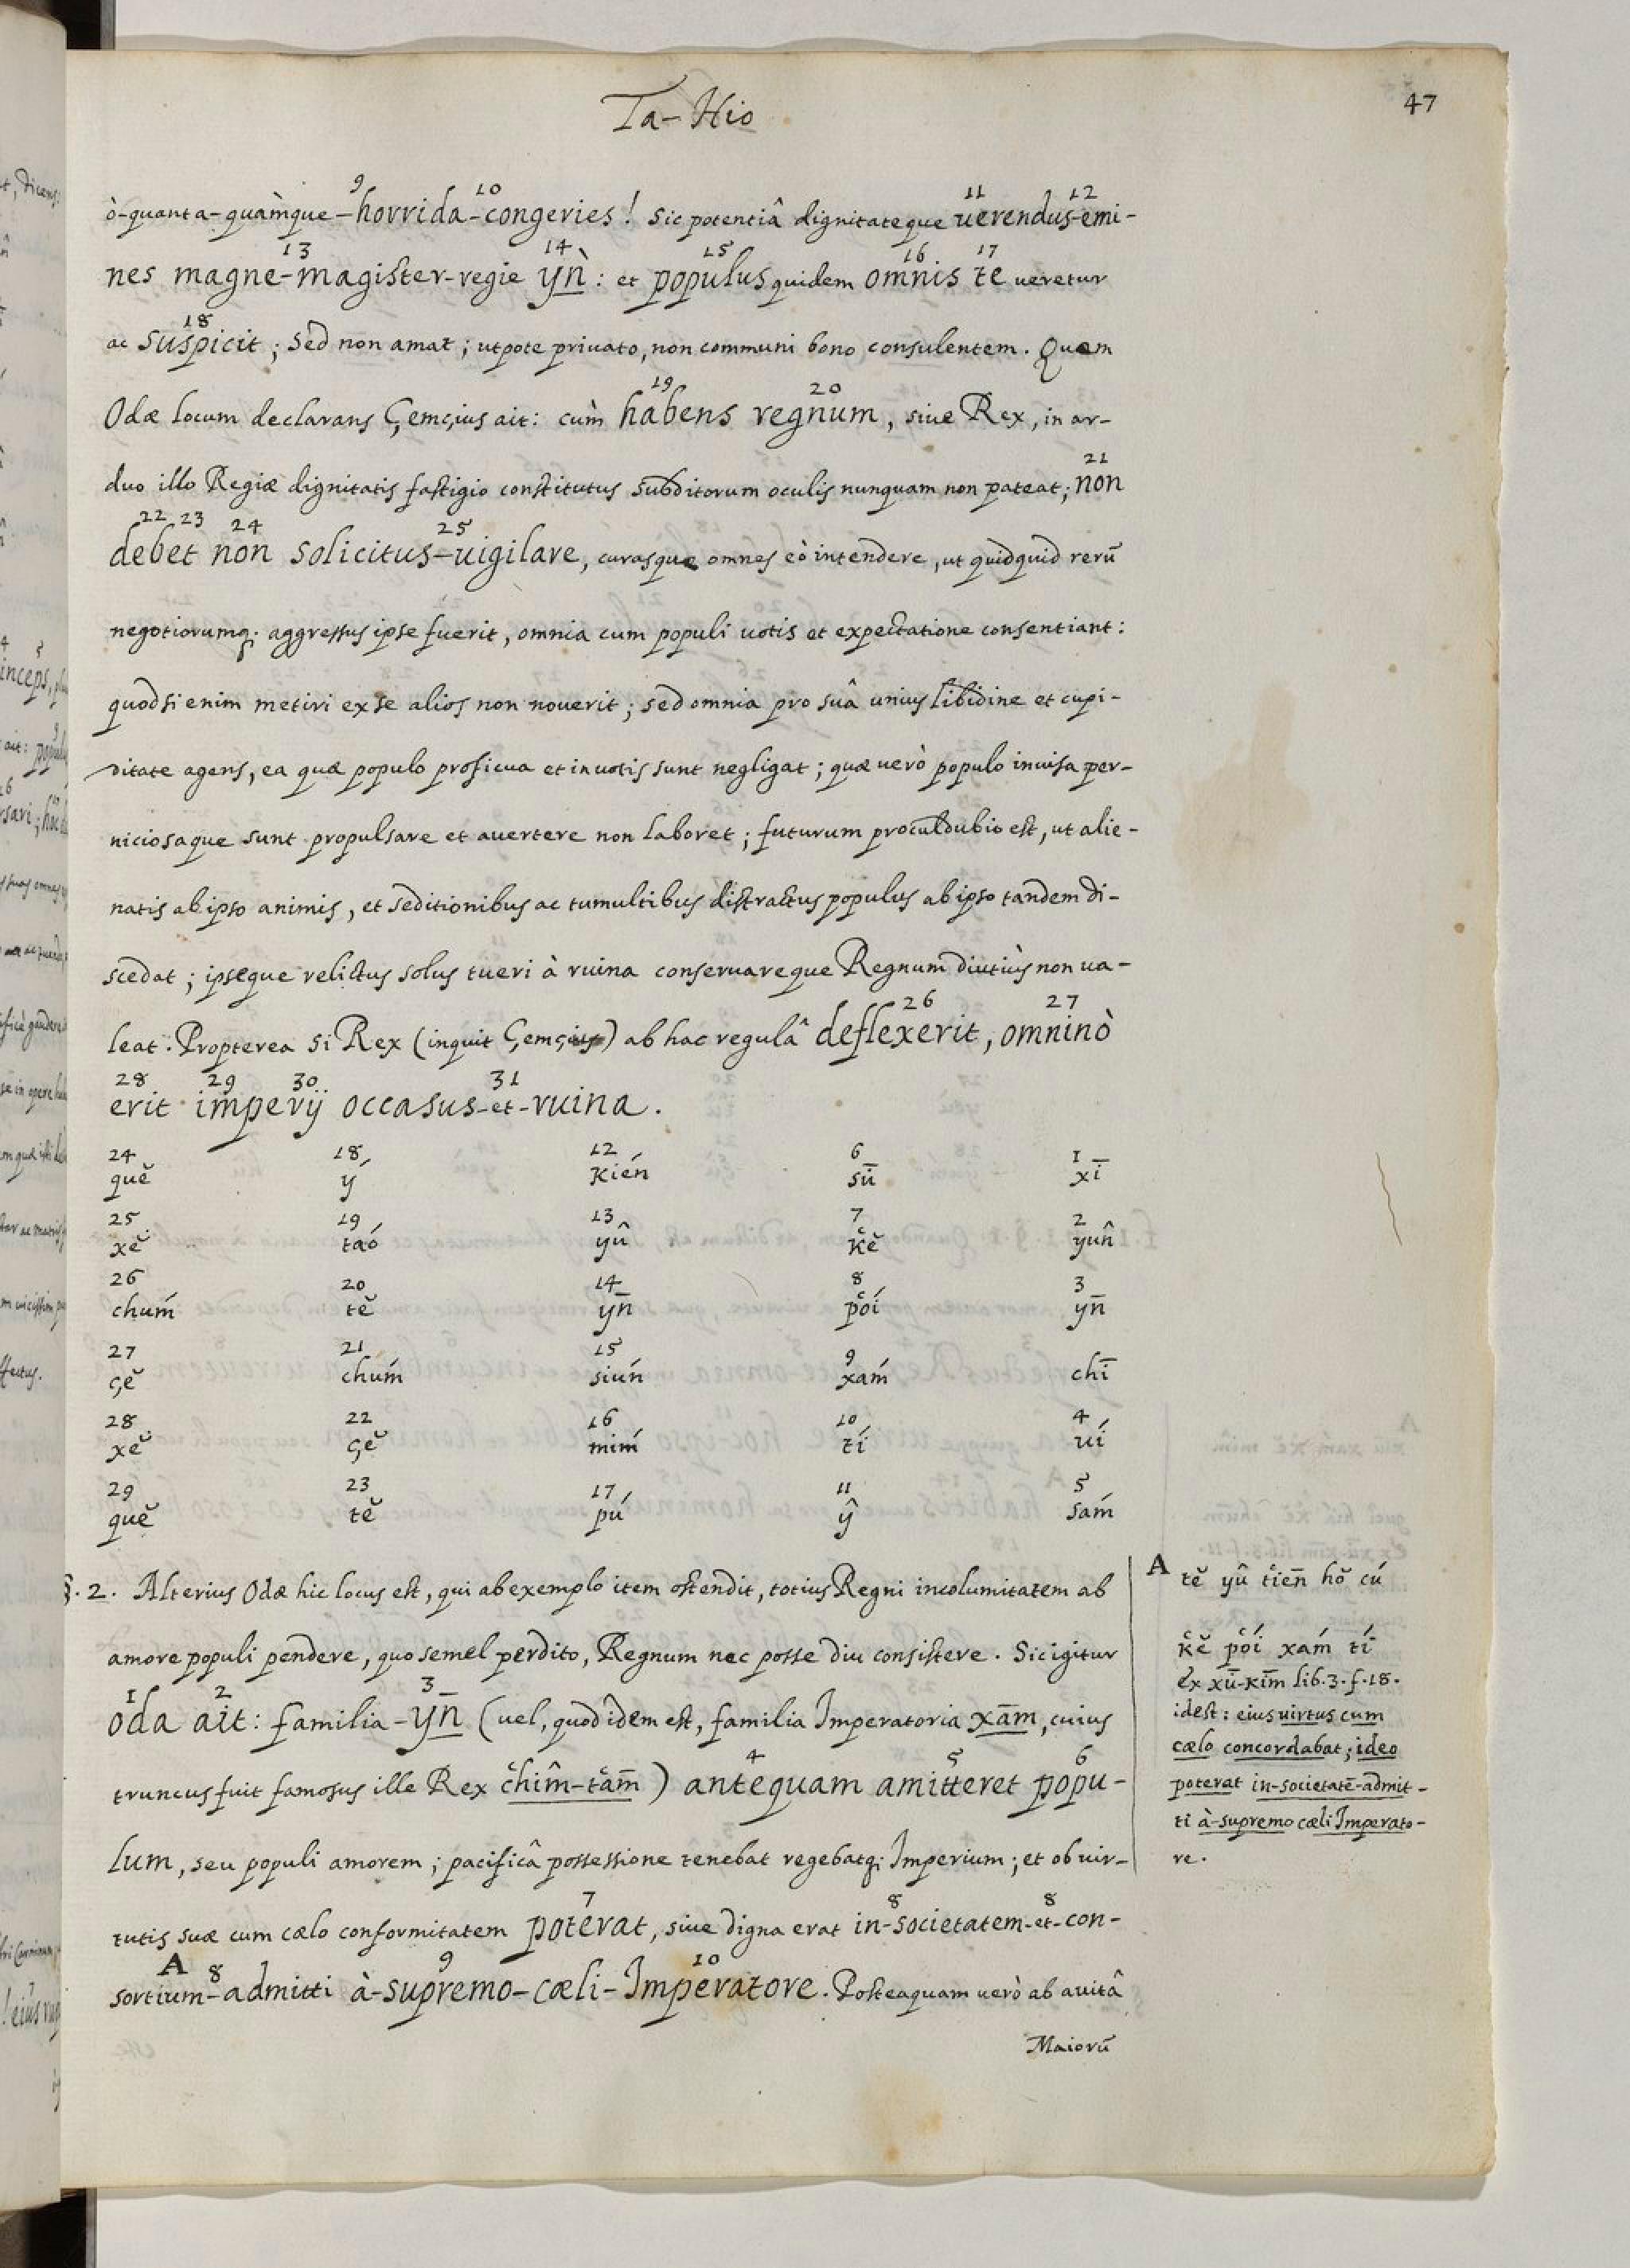 Ta-Hio
47
9 10 11 12
ò-quanta-quàmque-horrida-congeries! Sic potentiâ dignitateque uerendus-emi-
13 14 15 16 17
nes magne-magister-regie yǹ: et populus quidem omnis te ueretur
18
ac suspicit; sed non amat; utpote priuato, non communi bono consulentem. Quem
19 20
Odæ locum declarans Çemçius ait: cùm habens regnum, siue Rex, in ar-
21
duo illo Regiæ dignitatis fastigio constitutus subditorum oculis nunquam non pateat; non
22 23 24 25
debet non solicitus-uigilare, curasque omnes eò intendere, ut quidquid rerū
negotiorumq; aggressus ipse fuerit, omnia cum populi uotis et expectatione consentiant:
quodsi enim metiri ex se alios non nouerit; sed omnia pro suâ unius libidine et cupi-
ditate agens, ea quæ populo proficua et in uotis sunt negligat; quæ uerò populo inuisa per-
niciosaque sunt propulsare et auertere non laboret; futurum proculdubio est, ut alie-
natis ab ipso animis, et seditionibus ac tumultibus distractus populus ab ipso tandem di-
scedat; ipseque relictus solus tueri à ruina conseruareque Regnum diutiùs non ua-
26 27
leat. Propterea si Rex (inquit Çemçius) ab hac regulâ deflexerit, omninò
28 29 30 31
erit imperij occasus-et-ruina.
24 18 12 6 1
quĕ ý kién sū xī
25 19 13 7 2
xĕ taó yû k̔ĕ yun̂
26 20 14 8 3
chuḿ tĕ yn̄ p̔òí yn̄
27 21 15 9
çĕ chuḿ siún xaḿ chī
28 22 16 10 4
xĕ çĕ miḿ tí uí
29 23 17 11 5
quĕ tĕ pú ŷ saḿ
§. 2. Alterius Odæ hic locus est, qui ab exemplo item ostendit, totius Regni incolumitatem ab
amore populi pendere, quo semel perdito, Regnum nec posse diu consistere. Sic igitur
1 2 3
Oda ait: familia-yn̄ (uel, quod idem est, familia Imperatoria xām, cuius
4 5 6
truncus fuit famosus ille Rex c̔him̂-t̔am̄) antequam amitteret popu-
lum, seu populi amorem; pacificâ possessione tenebat regebatq; Imperium; et ob uir-
7 8 8
tutis suæ cum cælo conformitatem poterat, siue digna erat in-societatem-et-con-
A 8 9 10
sortium-admitti à-supremo-cæli-Imperatore. Posteaquam uerò ab auitâ
Maiorū
A tĕ yû t̔ien̄ hŏ cú
k̔ĕ p̔oí xaḿ tí
Ex xū-kim̄ lib. 3. f. 18.
idest: eius uirtus cum
cælo concordabat; ideo
poterat in-societatē-admit-
ti à-supremo cæli Imperato-
re.